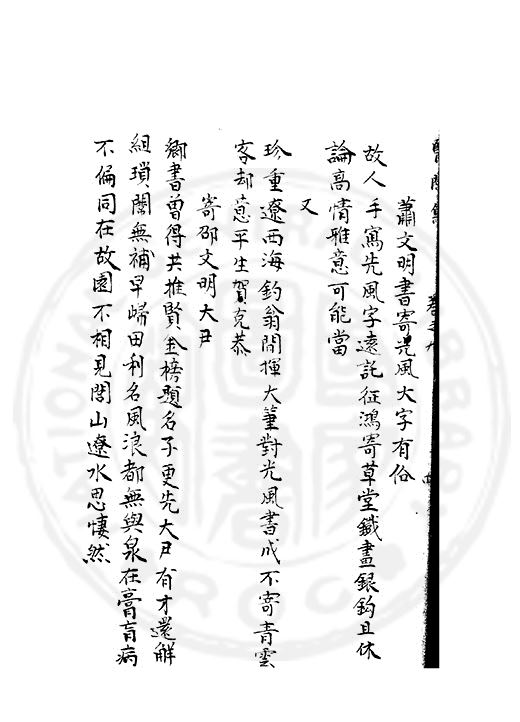 醫閭集 卷之九
蕭文明書寄光風大字有俗
故人手寫光風字遠託征鴻寄草堂鐵畫銀鈎且休
論高情雅意可能當
又
珍重遼西海釣翁閒揮大筆對光風書成不寄青雲
客却憶平生賀克恭
寄邵文明大尹
鄉書曾得共推賢金榜題名子更先大尹有才還解
組瑣闥無補早歸田利名風浪都無與泉在膏肓病
不偏同在故園不相見閭山遼水思悽然